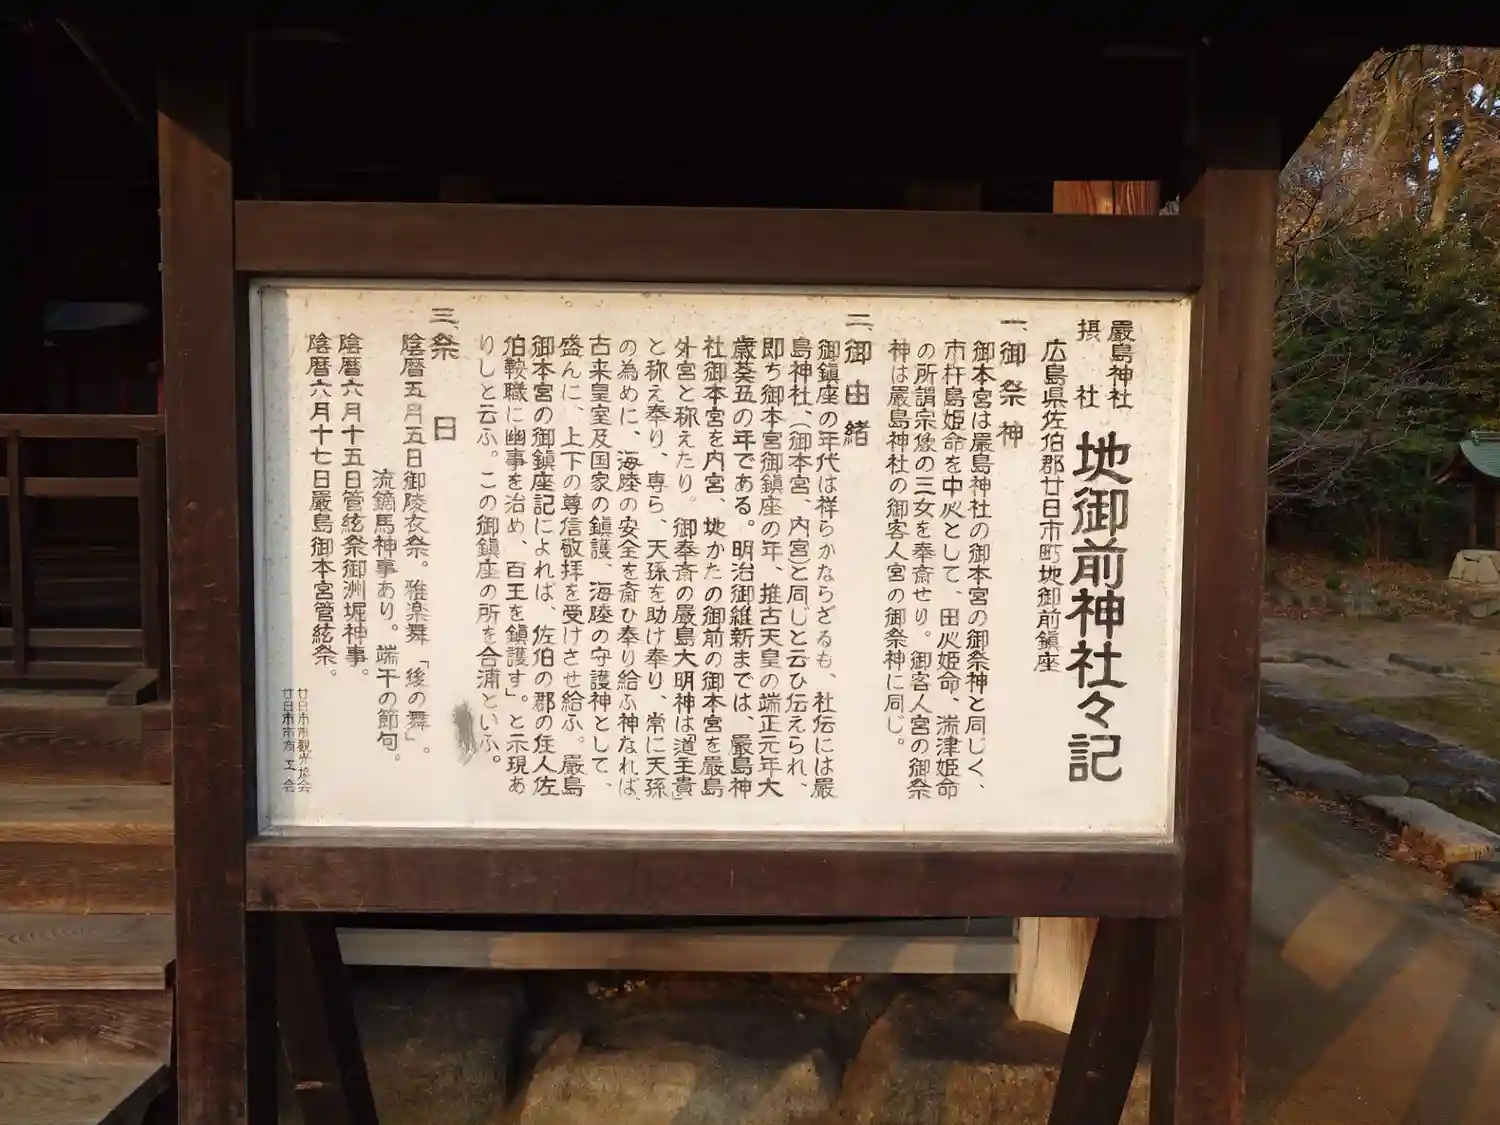 嚴島神社
摂社
地御前神社々記
広島県佐伯郡廿日市町地御前鎮座
一、御祭神
御本宮は嚴島神社の御本宮の御祭神と同じく、
市杵島姫命を中心として、田心姫命、湍津姫命
の所謂宗像の三女を奉斎せり。御客人宮の御祭
神は嚴島神社の御客人宮の御祭神に同じ。
二、御由緒
御鎮座の年代は祥らかならざるも、社伝には嚴
島神社、(御本宮、内宮)と同じと云ひ伝えられ、
即ち御本宮御鎮座の年、推古天皇の端正元年大
歳葵丑の年である。明治御維新までは、嚴島神
社御本宮を内宮、地かたの御前の御本宮を嚴島
外宮と称えたり。御奉斎の嚴島大明神は「道主貴」
と称え奉り、専ら、天孫を助け奉り、常に天孫
の為めに、海陸の安全を斎ひ奉り給ふ神なれば、
古来皇室及国家の鎮護、海陸の守護神として、
盛んに、上下の尊信敬拝を受けさせ給ふ。嚴島
御本宮の御鎮座記によれば、佐伯の郡の住人佐
伯鞍職に幽事を治め、百王を鎮護す」。と示現あ
りしと云ふ。この御鎮座の所を合浦といふ。
三、祭日
陰暦五月五日御陵衣祭。雅楽舞「後の舞」。
流鏑馬神事あり。端午の節句。
陰暦六月十五日管絃祭御洲堀神事。
陰暦六月十七日嚴島御本宮管絃祭。
廿日市市観光協会
廿日市市商工会